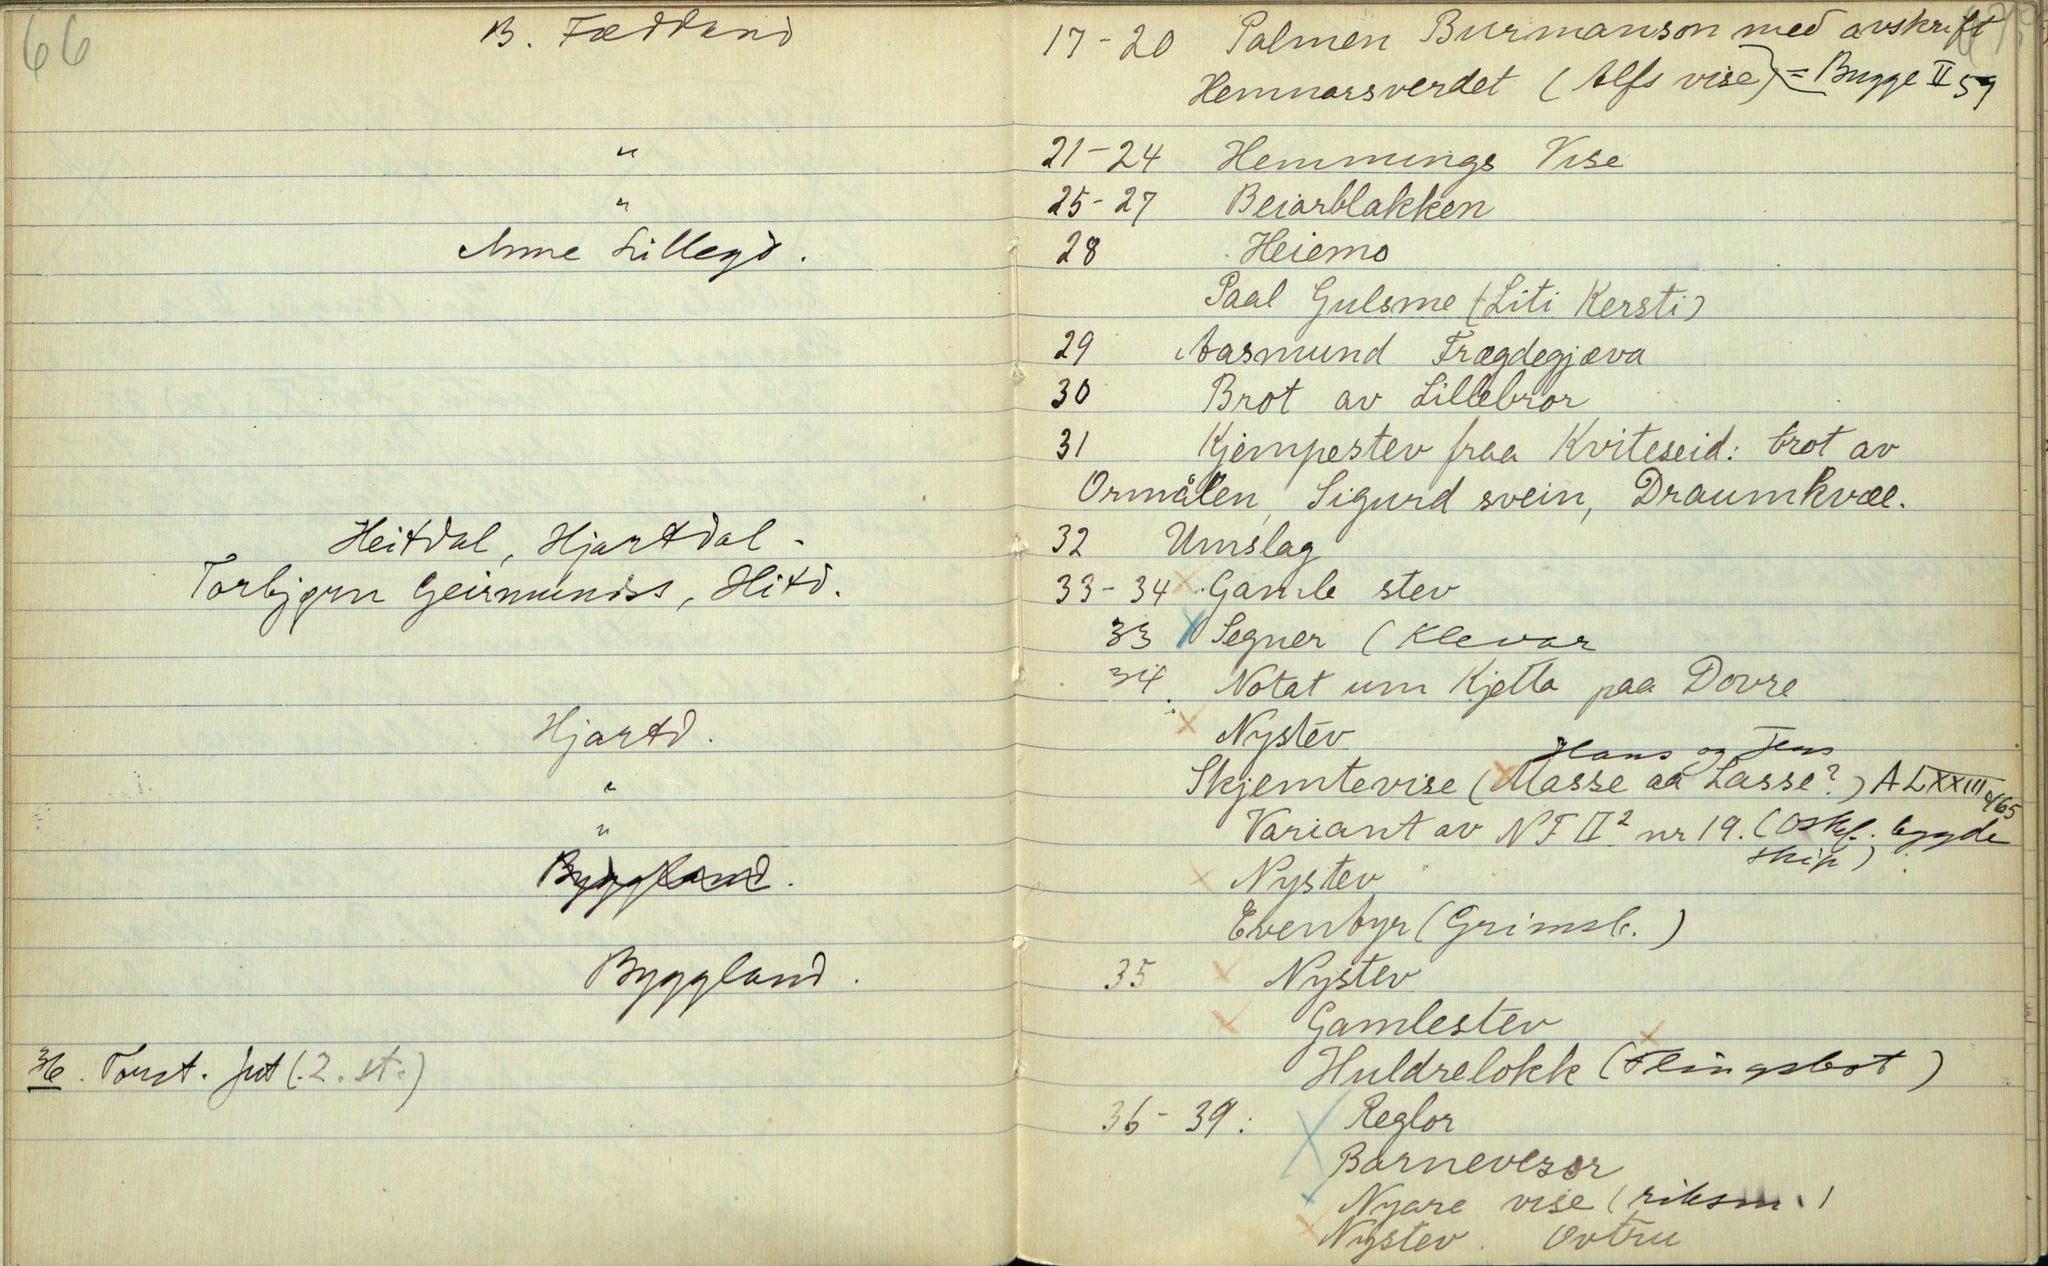 66
B. Fæddand
"
"
Anne Lillegd.
Heitdal, Hjartdal -
Torbjørn Geirmundss, Hitd.
Hjartd.
"
"
Byggland.
Byggland.
36. Torst. jut (2. st.)
17-20 Palmen Burmanson med avskrift
Hemnarsverdet (Alfs vise) = Bugge II 59
21-24 Hemmings Vise
25-27 Beiarblakken
28 Heiemo
Paal Gulsme (Liti Kersti)
29 Aasmund Frægdegjæva
30 Brot av Lillebror
31 Kjempestev fraa Kviteseid: brot av
Ormålen, Sigurd svein, Draumkvæe.
32 Umslag
33-34 Gamle stev
33 Segner (Klevar
34 Notat um Kjetta paa Dovre
Nystev
Hans og Jens
Skjemtevise (Masse aa Lasse?) A LXXIII 465
Variant av NF II² nr 19. (Oskef. bygde
skip)
Nystev
Evenbyr (Grimsb.)
35 Nystev
Gamlestev
Huldrelokk (
36-39: Reglor
Barnevesor
Nyare vise (riksm.)
Nystev. Ovtru